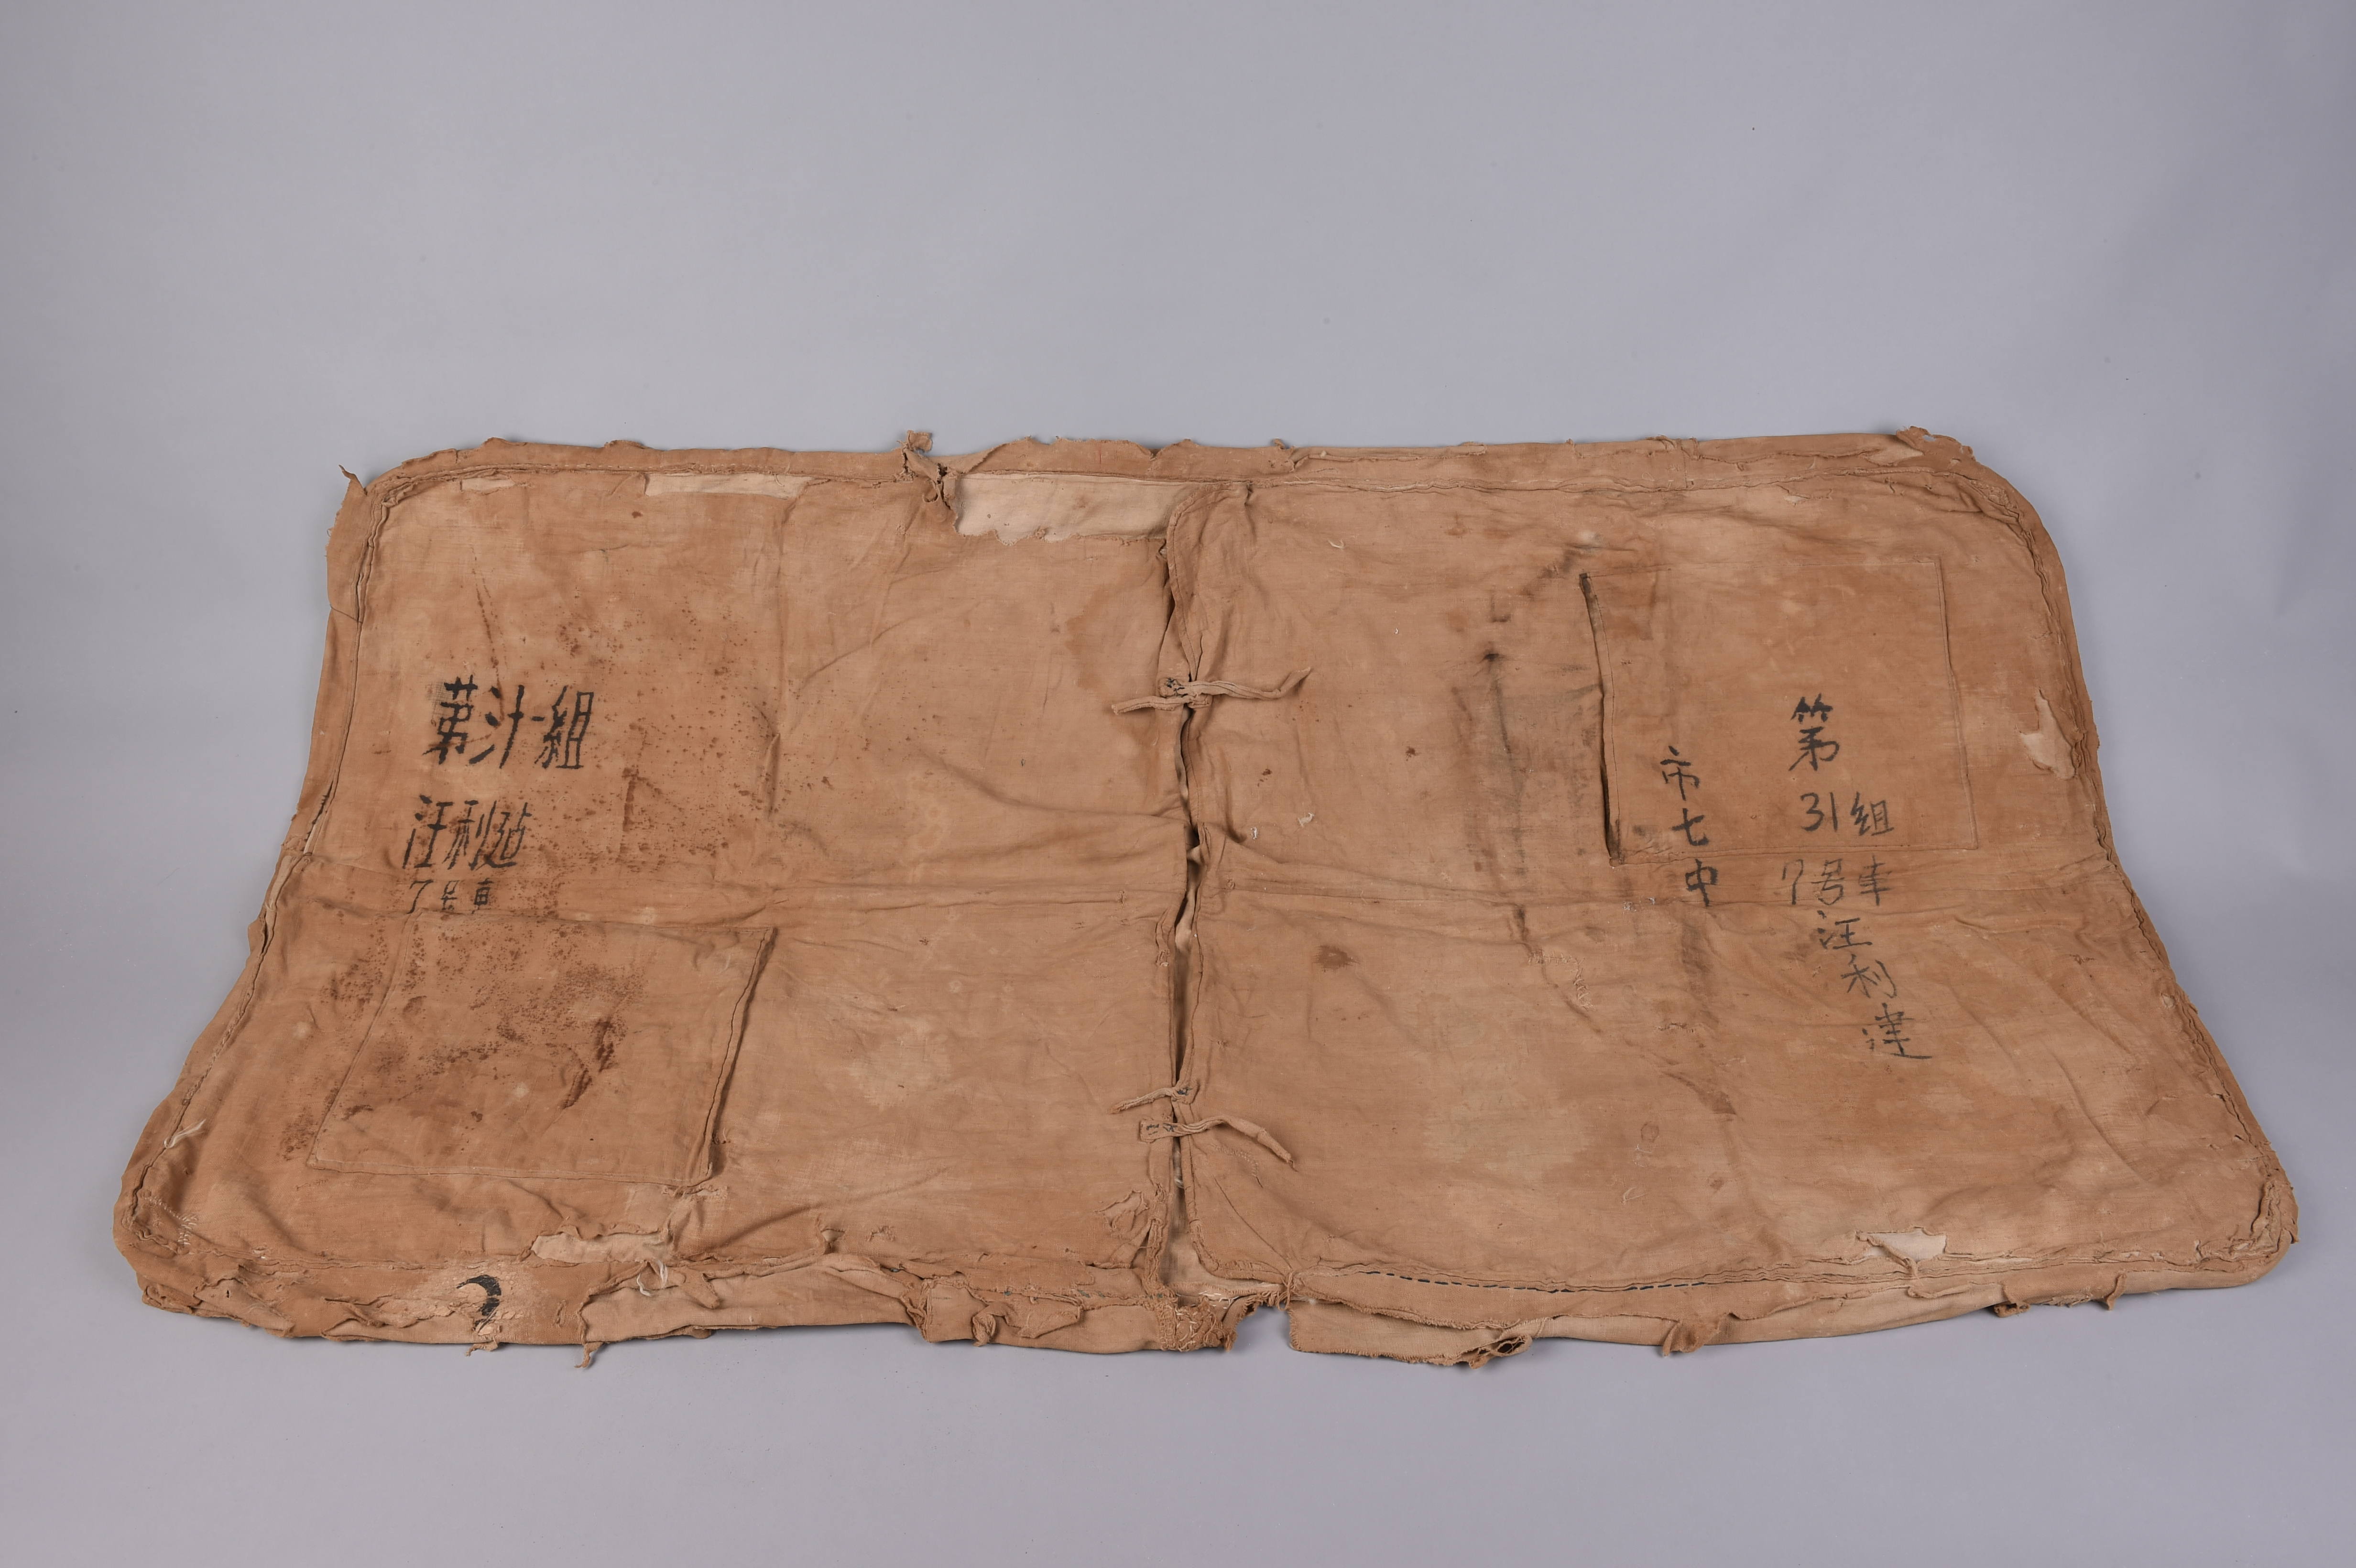 苐卅一組
汪利迠
7号車
市七中
第
31组
7号车
汪利建